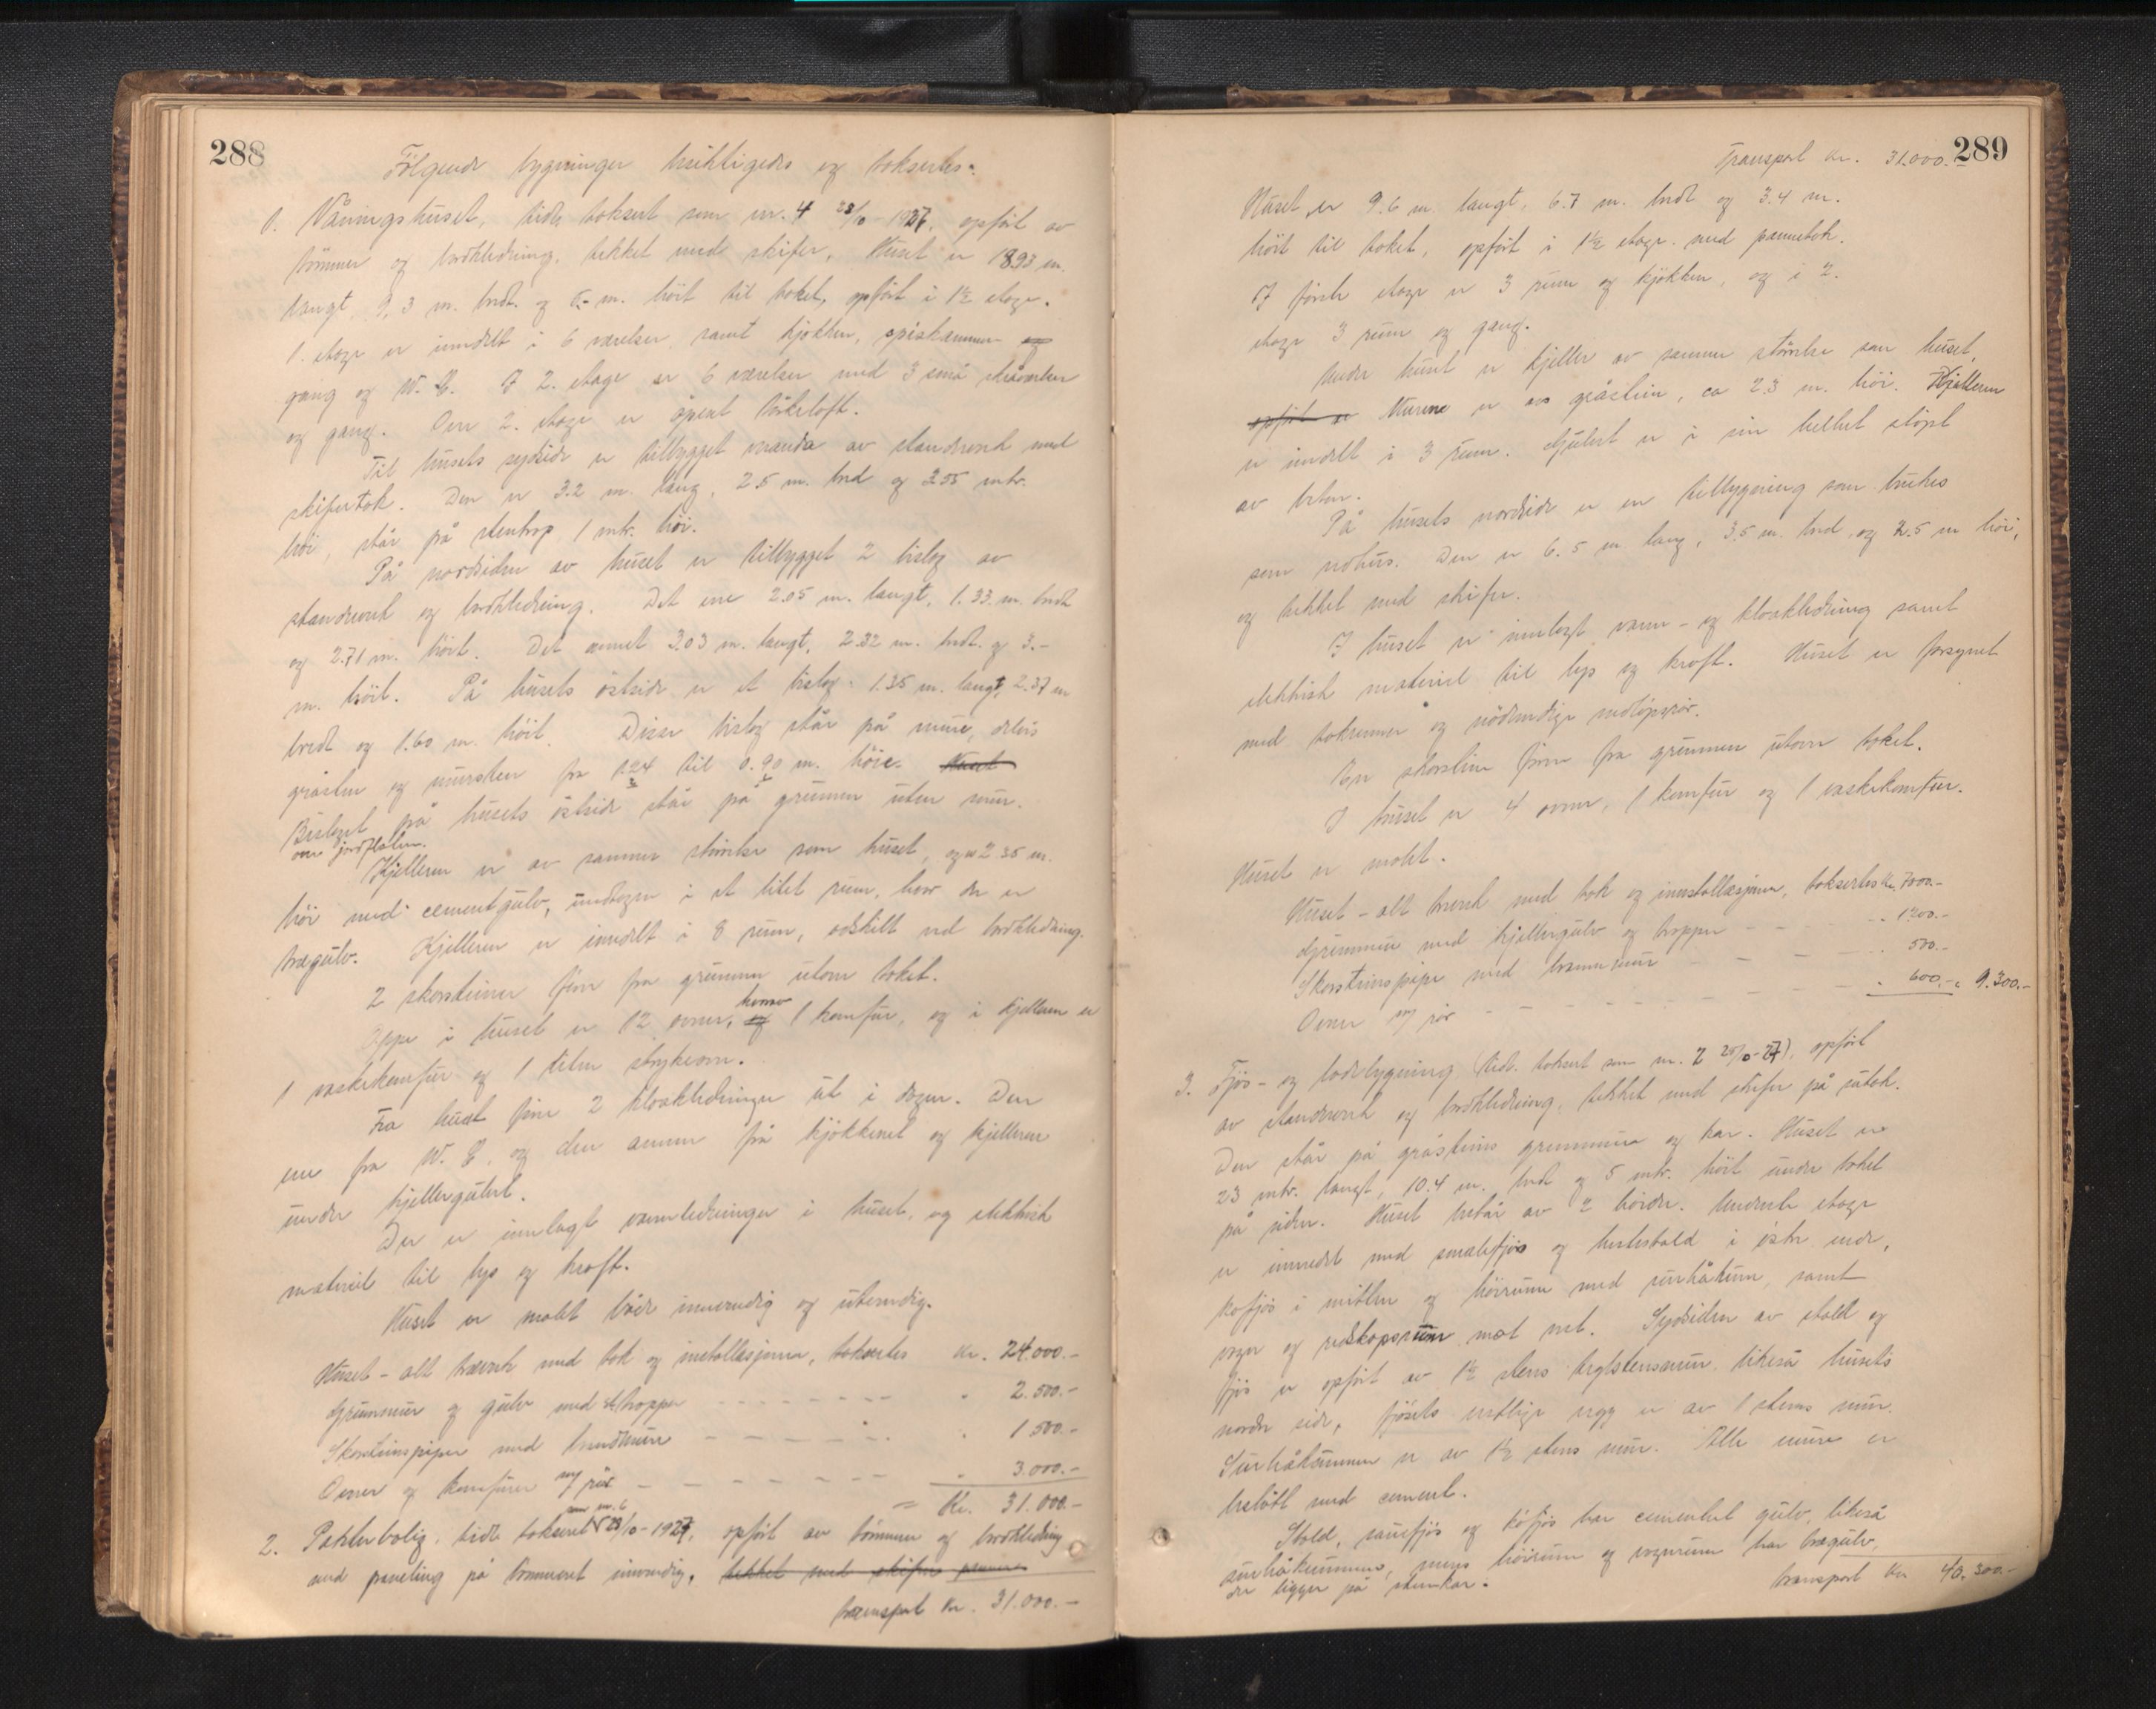 288
Følgende bygninger besiktigedes og takseres:
1. Våningshuset, tidl. taksert som nr. 4 28/10-1927, opført av
tømmer og bordklædning, tekket med skifer, Huset er 18.93 m.
langt, 9,3 m. bredt og 5.- m. høit til taket, opført i 1½ etage.
1. etage er inndelt i 6 værelser, samt kjøkken, spiskammer og
gang og W. C. I 2. etage er 6 værelser med 3 små
og gang. Over 2. etage er åpent tørkeloft.
Til husets sydside er tilbygget veranda av standverk med
skifertak. Den er 3.2 m. lang, 2.5 m. bred og 2.55 mtr.
høi, står på stentrap 1 mtr. høi.
På nordsiden av huset er tilbygget 2 bislag av
standverk og bordklædning. Det ene 2.05 m. langt, 1.33 m. bredt
og 2.71 m. høit. Det annet 3.03 m. langt, 2.32 m. bredt og 3.-
m. høit. På husets østside er et bislag 1.35 m. langt, 2.37 m
bredt og 1.60 m. høit. Disse bislag står på mure, delvis
gråsten og mursten fra 1.24 til 0.90 m. høie. Huset
Bislaget på husets østside står på grunnen uten mur.
over jordflaten.
Kjelleren er av samme størrelse som huset, og er 2.35 m.
høi med cementgulv, undtagen i et litet rum, hvor der er
trægulv. Kjelleren er inndelt i 8 rum, adskilt ved bordklædning.
2 skorsteiner fører fra grunnen utover taket.
Oppe i huset er 12 ovner, og 1 komfur, og i kjelleren er
1 vaskekomfur og 1 liten strykeovn.
Fra huset fører 2 kloakledninger ut i Den
ene fra W. C. og den annen fra kjøkkenet og kjelleren
under kjellergulvet.
Der er innlagt vannledninger i huset, og elektrisk
materiel til lys og kraft.
Huset er malt både innvendig og utvendig.
Huset - alt træverk med tak og installasjoner, takseres kr. 24.000.-
Grunnmur og gulv med trapper - - - - - " 2.500.-
Skorsteinspiper med brandmure - - - - - " 1.500.-
Ovner og komfurer m/ rør - - - - - - " 3.000.-
= Kr. 31.000.-
som nr. 6
2. Pakterbolig, tidl. taksert 28/10-1927, opført av tømmer og bordklædning
med paneling på tømmeret innvendig, tekket med skifer panner
transport kr. 31.000.-
289
Transport kr. 31.000.-
Huset er 9.6 m. langt, 6.7 m. bredt og 3.4 m.
høit til taket, opført i 1½ etage med pannetak.
I første etage er 3 rum og kjøkken, og i 2.
etage 3 rum og gang.
Under huset er kjeller av samme størrelse som huset,
opført er Murene er av gråstein, ca 2.3 m. høi. Kjelleren
er inndelt i 3 rum. Gulvet er i sin helhet støpt
av beton.
På husets nordside er en tilbygning som brukes
som vedhus. Den er 6.5 m. lang, 3.5 m. bred og 2.5 m høi,
og tekket med skifer.
I huset er innlagt vann- og kloakledning samt
elektrisk materiel til lys og kraft. Huset er forsynet
med takrenner og nødvendige nedløpsrør.
En skorstein fører fra grunnen utover taket.
I huset er 4 ovner, 1 komfur og 1 vaskekomfur.
Huset er malt.
Huset - alt treverk med tak og innstallasjoner, takseres kr. 7000.-
Grunnmur med kjellergulv og trapper - - - - " 1200.-
Skorsteinspipe med brannmur - - - - " 500.-
Ovner m/ rør - - - - - - - " 600.- " 9.300.-
3. Fjøs- og ladebygning (tidl. taksert som nr. 2 28/10-27), opført
av standverk og bordklædning, tekket med skifer på sutak.
Den står på gråsteins grunnmure og kar. Huset er
23 mtr. langt, 10.4 m. bredt og 5 mtr. høit under taket
på siden. Huset består av 2 høider. Underste etage
er innredet med småfefjøs og hestestald i østre ende,
kofjøs i midten og høirum med surhåkum, samt
vogn og redskapsrum mot vest. Sydsiden av stald og
fjøs er opført av 1½ stens teglstensmur, likeså husets
nordre side, fjøsets vestlige vegg er av 1 stens mur.
Surhåkummen er av 1½ stens mur. Alle mure er
beslått med cement.
Stald, sauefjøs og kofjøs har cementert gulv, likeså
surhåkummen, mens høirum og vognrum har trægulv,
der ligger på stenkar.
transport kr 40.300.-